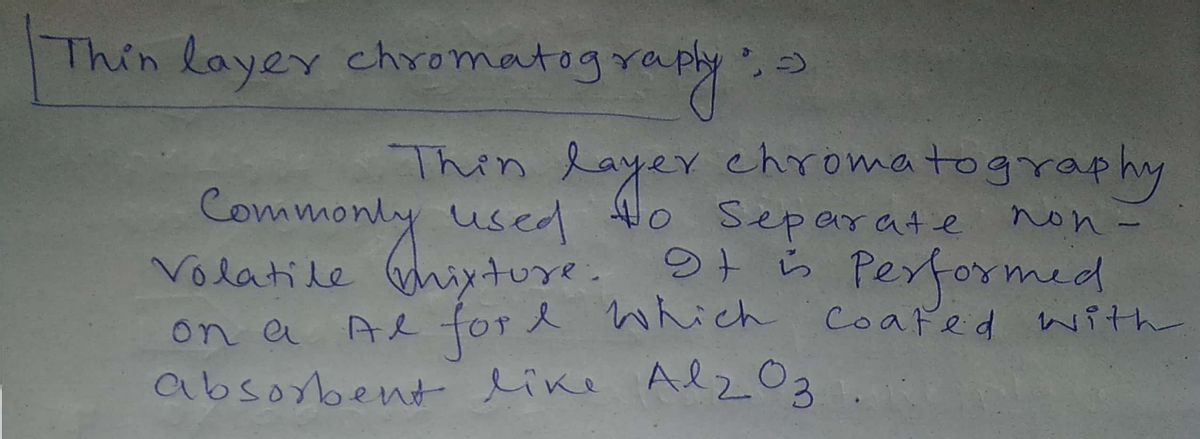 Thin layer chromatography :, =>
Thin layer chromatography
Commonly used to separate non-
volatile mixture. It is Performed
on a Al foil which coated with
absorbent like Al2O3.